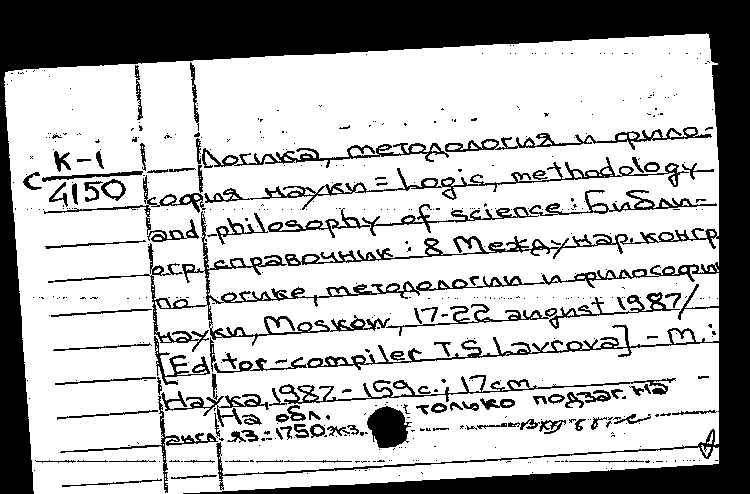 К-1
С 4150
Логика, методология и фило-
софия науки = Logic, methodology
and philosophy of science: Библи-
огр. справочник: 8 Междунар. конгр
по логике, методологии и философии
науки, Moskow, 17-22 august 1987/
[Editor-compiler T.S. Lavrova]. - М.:
Наука, 1987. - 159с.; 17см.
На обл. только подзаг. на
англ. яз. - 1750экз.